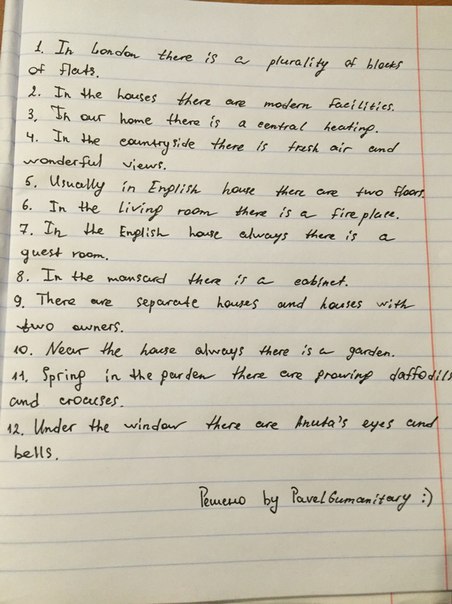 1. In London there is a plurality of blocks
of flats.
2. In the houses there are modern facilities.
3. In our home there is a central heating.
4. In the countryside there is fresh air and
wonderful views.
5. Usually in English house there are two floors.
6. In the living room there is a fireplace.
7. In the English house always there is a
guest room.
8. In the mansard there is a cabinet.
9. There are separate houses and houses with
two owners.
10. Near the house always there is a garden.
11. Spring in the garden there are growing daffodils
and crocuses.
12. Under the window there are Anuta's eyes and
bells.
Решено by PavelGumanitary :)